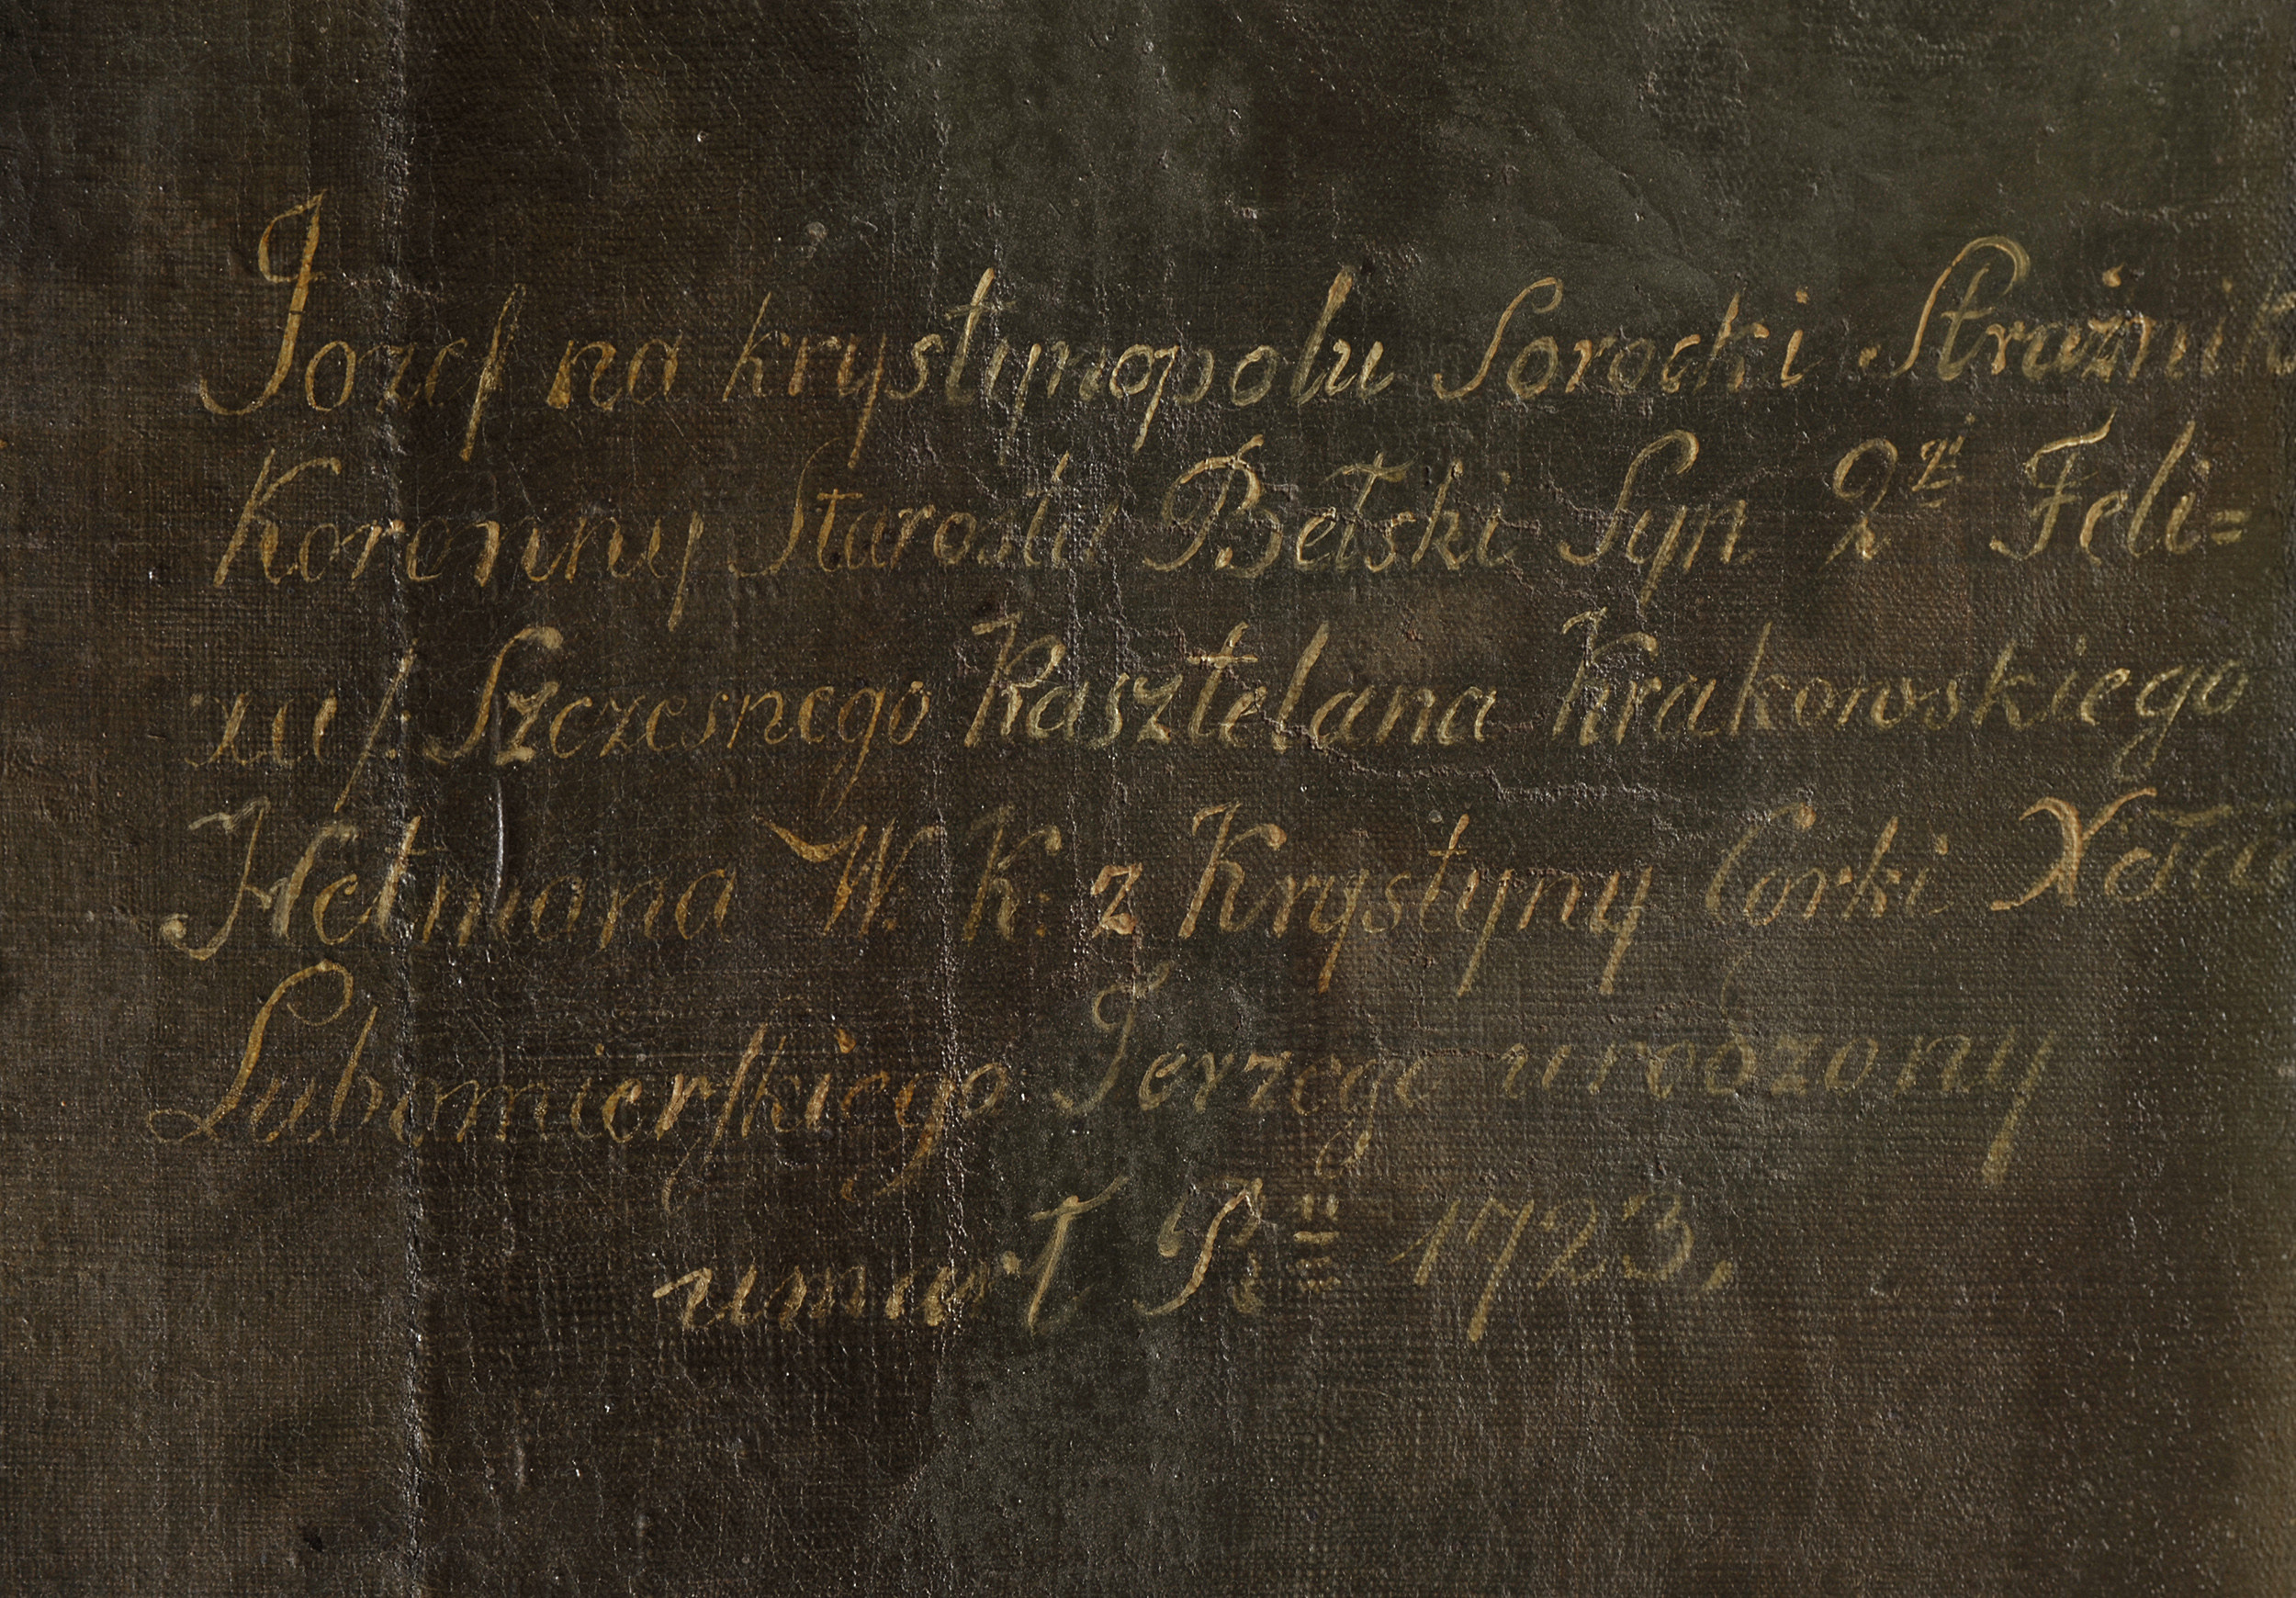 Jozef na krystynopolu Sorocki Strażnik
Koronny Starosta Bełski Syn 2gi Feli=
xa f: Szczesnego Kasztelana Krakowskiego
Hetmana W: K: z Krystyny Corki Xcia
Lubomierskiego Jerzego urodzony
umarł R: 1723.